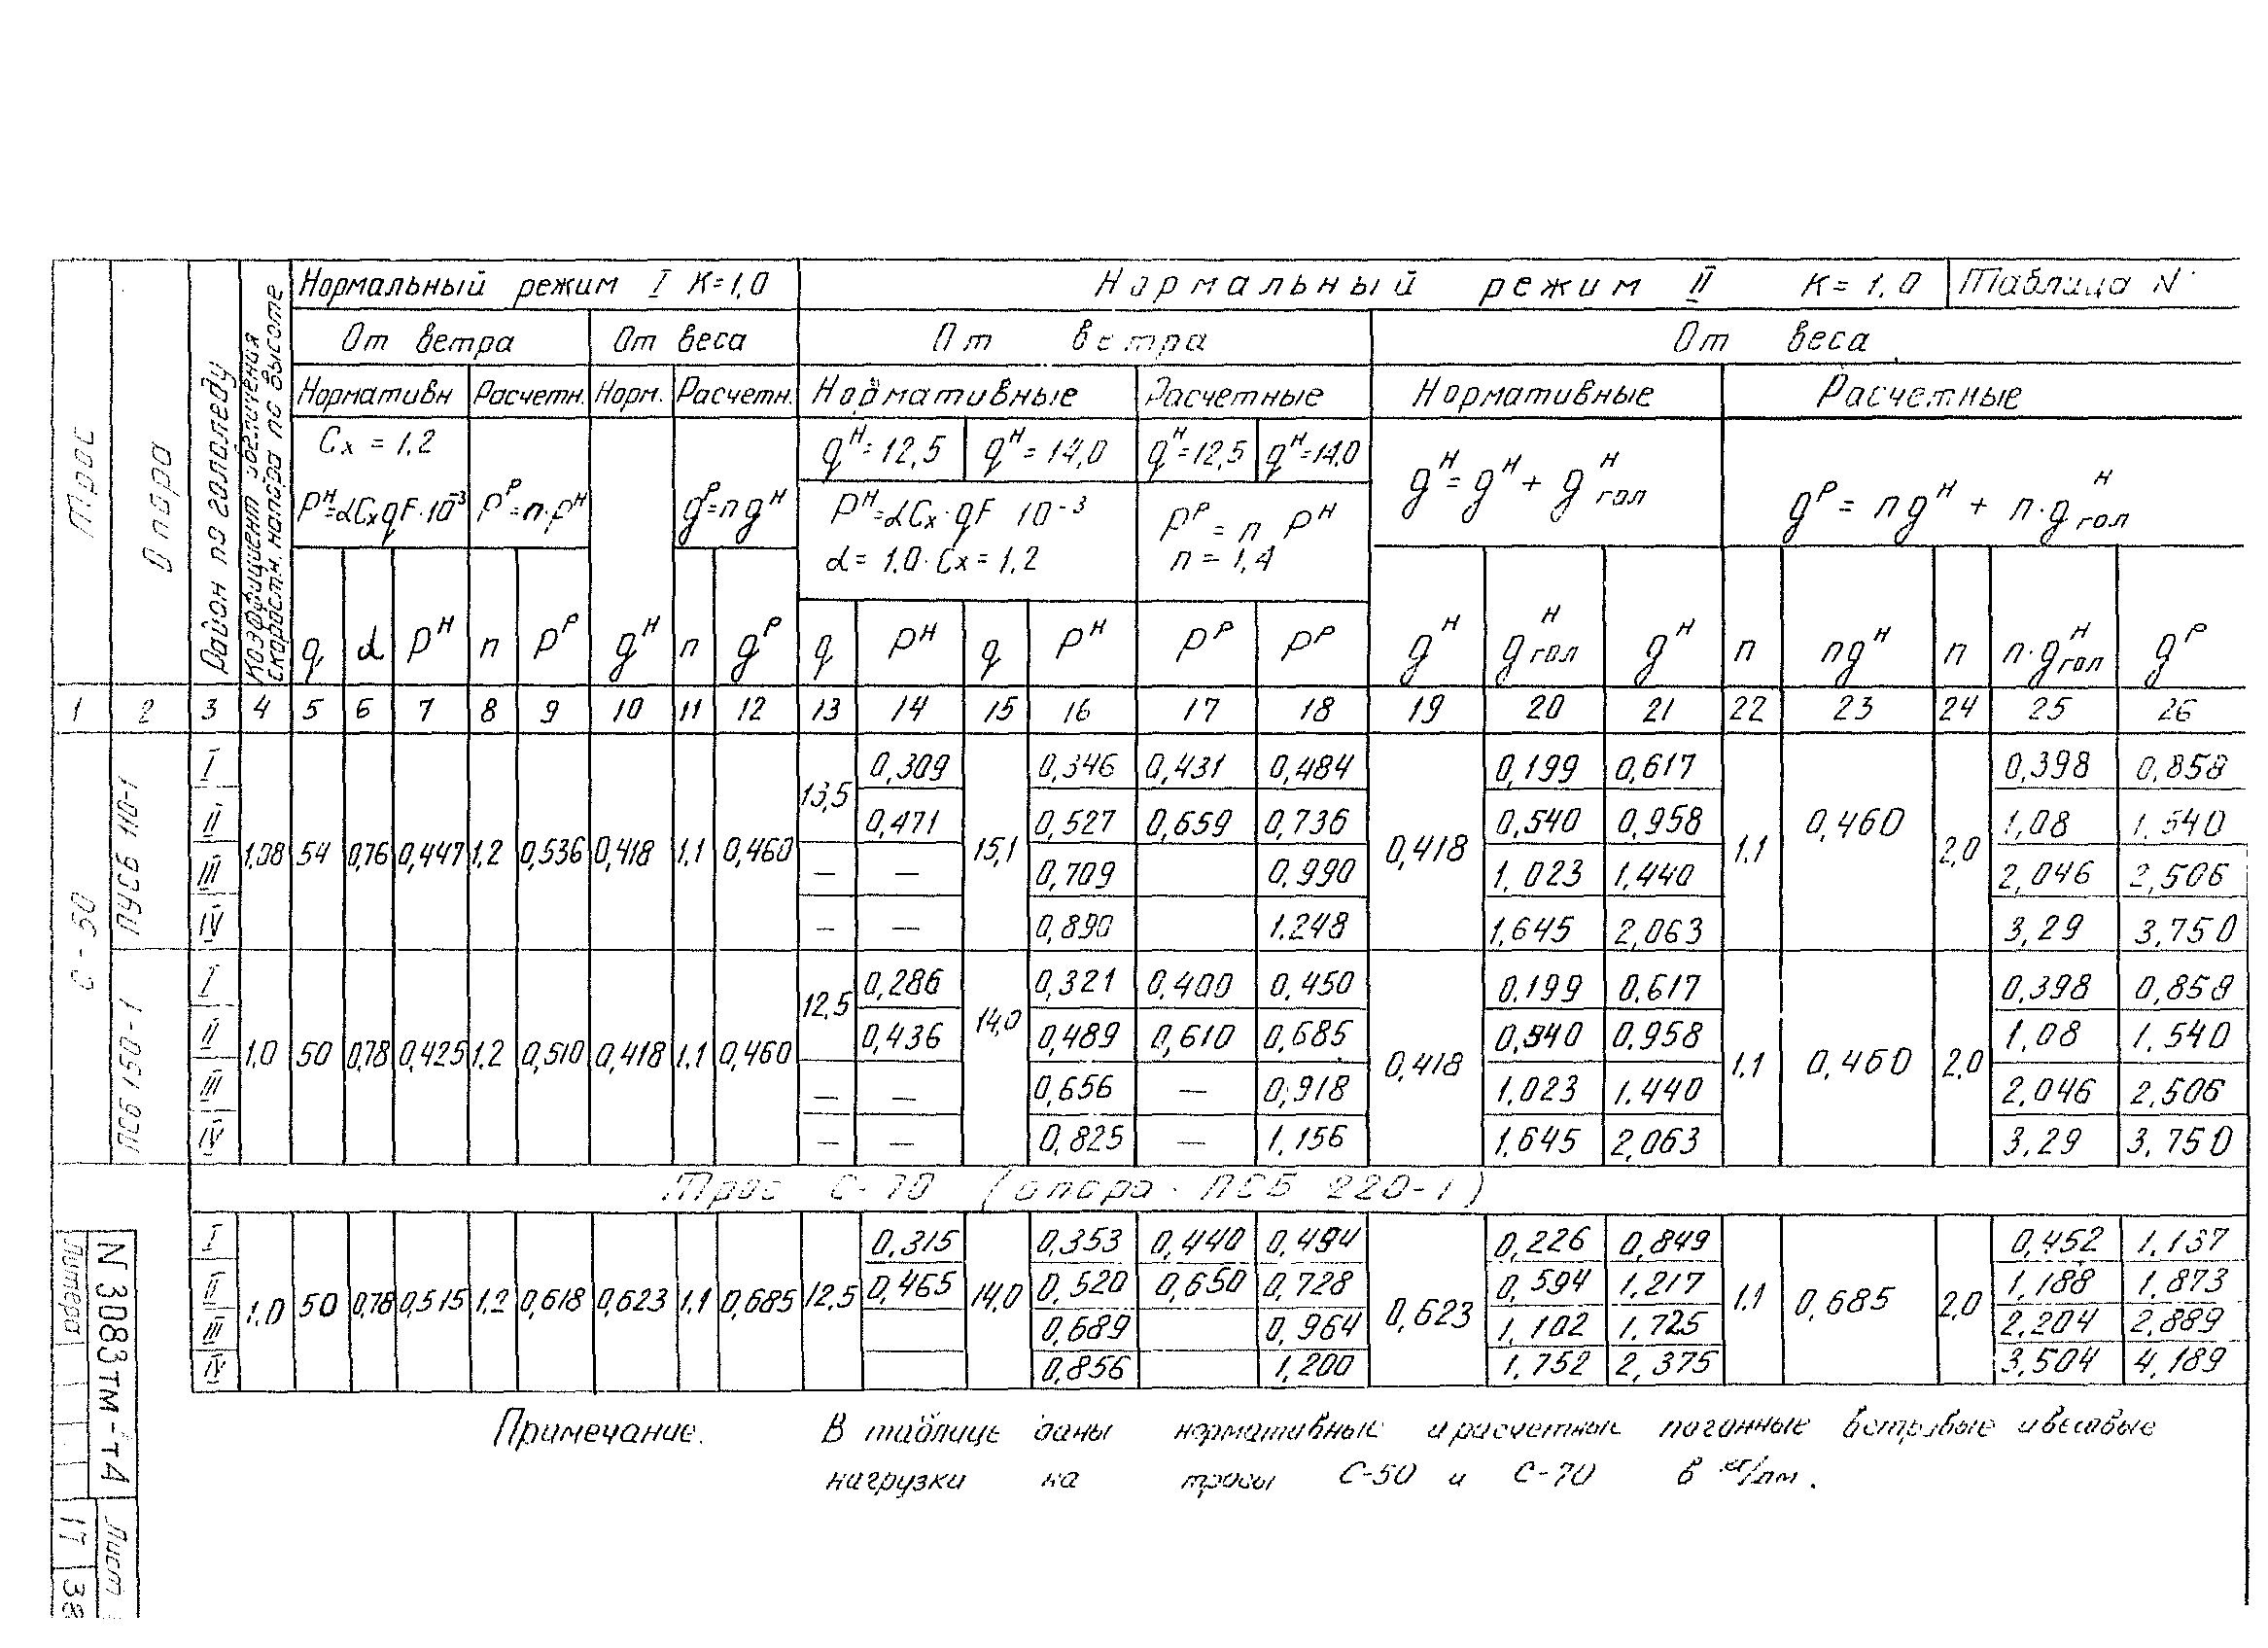 Нормальный режим I К=1,0
Нормальный режим II К=1,0
Таблица N
Трос
Опора
Район по гололеду
Коэффициент увеличения
скоростн. напора по высоте
От ветра
От веса
От ветра
От веса
Нормативн
Расчетн.
Норм.
Расчетн.
Нормативные
Расчетные
Нормативные
Расчетные
Cx = 1,2
qᴴ=12,5
qᴴ=14,0
qᴴ=12,5
qᴴ=14,0
Pᴴ=αCxqF·10⁻³
Pᴾ=n·Pᴴ
gᴾ=ngᴴ
Pᴴ=αCx·qF 10⁻³
α=1,0·Cx=1,2
Pᴾ=n Pᴴ
n=1,4
gᴴ=gᴴ+gᴴгол
gᴾ=ngᴴ+n·gᴴгол
q α Pᴴ n Pᴾ gᴴ n gᴾ q Pᴴ q Pᴴ Pᴾ Pᴾ gᴴ gᴴгол gᴴ n ngᴴ n n·gᴴгол gᴾ
1 2 3 4 5 6 7 8 9 10 11 12 13 14 15 16 17 18 19 20 21 22 23 24 25 26
С-50
ПУСБ 110-1
1,08 54 0,76 0,447 1,2 0,536 0,418 1,1 0,460 13,5 15,1 0,418 1.1 0,460 2,0
I 0,309 0,346 0,431 0,484 0,199 0,617 0,398 0,858
II 0,471 0,527 0,659 0,736 0,540 0,958 1,08 1,540
III — — 0,709 0,990 1,023 1,440 2,046 2,506
IV — — 0,890 1.248 1,645 2,063 3,29 3,750
ПСБ 150-1
1,0 50 0,78 0,425 1,2 0,510 0,418 1,1 0,460 12,5 14,0 0,418 1.1 0,460 2,0
I 0,286 0,321 0,400 0,450 0.199 0.617 0.398 0,858
II 0,436 0,489 0,610 0,685 0,540 0.958 1,08 1,540
III — — 0,656 — 0,918 1.023 1.440 2,046 2,506
IV — — 0,825 — 1,156 1,645 2,063 3,29 3,750
Трос С-70 (опора - ПСБ 220-1)
1,0 50 0,78 0,515 1,2 0,618 0,623 1,1 0,685 12,5 14,0 0,623 1.1 0,685 2,0
I 0,315 0,353 0,440 0,494 0,226 0,849 0,452 1,137
II 0,465 0,520 0,650 0,728 0,594 1,217 1,188 1,873
III 0,689 0,964 1,102 1,725 2,204 2,889
IV 0,856 1,200 1,752 2,375 3,504 4,189
Примечание. В таблице даны нормативные и расчетные погонные ветровые и весовые
нагрузки на тросы С-50 и С-70 в кг/пм.
N 3083тм-т4
Литера
Лист
17
38